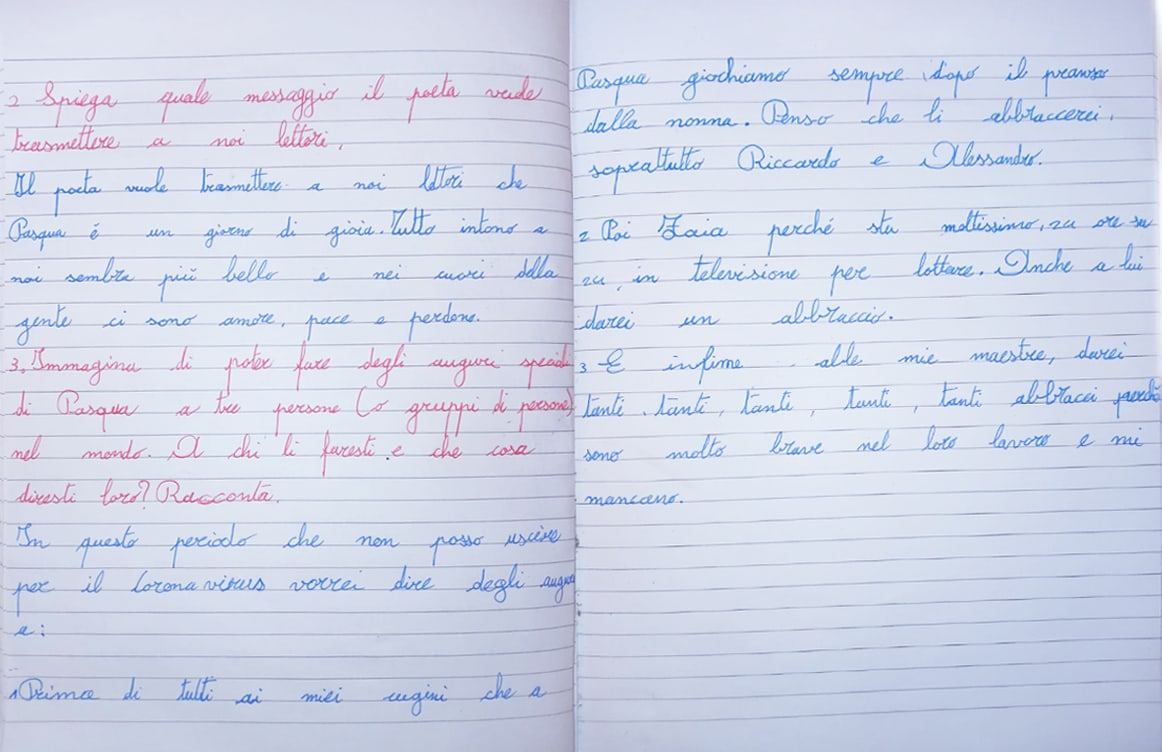 2 Spiega quale messaggio il poeta vuole
trasmettere a noi lettori.
Il poeta vuole trasmettere a noi lettori che
Pasqua é un giorno di gioia. Tutto intono a
noi sembra piú bello e nei cuori della
gente ci sono amore, pace e perdono.
3. Immagina di poter fare degli auguri speciali
di Pasqua a tre persone (o gruppi di persone)
nel mondo. A chi li faresti e che cosa
diresti loro? Racconta.
In questo periodo che non posso uscire
per il Coronavirus vorrei dire degli auguri
a:
1 Prima di tutti ai miei cugini che a
Pasqua giochiamo sempre dopo il pranzo
dalla nonna. Penso che li abbraccerei,
soprattutto Riccardo e Alessandro.
2 Poi Zaia perché sta moltissimo, 24 ore su
24, in televisione per lottare. Anche a lui
darei un abbraccio.
3 E infime alle mie maestre, darei
tanti, tanti, tanti, tanti, tanti abbracci perché
sono molto brave nel loro lavoro e mi
mancano.